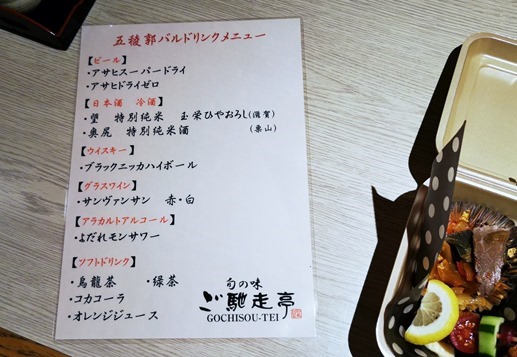 五稜郭バルドリンクメニュー
【ビール】
・アサヒスーパードライ
・アサヒドライゼロ
【日本酒 冷酒】
・望 特別純米 玉栄ひやおろし(滋賀)
・奥尻 特別純米酒 (栗山)
【ウイスキー】
・ブラックニッカハイボール
【グラスワイン】
・サンヴァンサン 赤・白
【アラカルトアルコール】
・よだれモンサワー
【ソフトドリンク】
・烏龍茶 ・緑茶
・コカコーラ
・オレンジジュース
旬の味
ご馳走亭
GOCHISOU-TEI